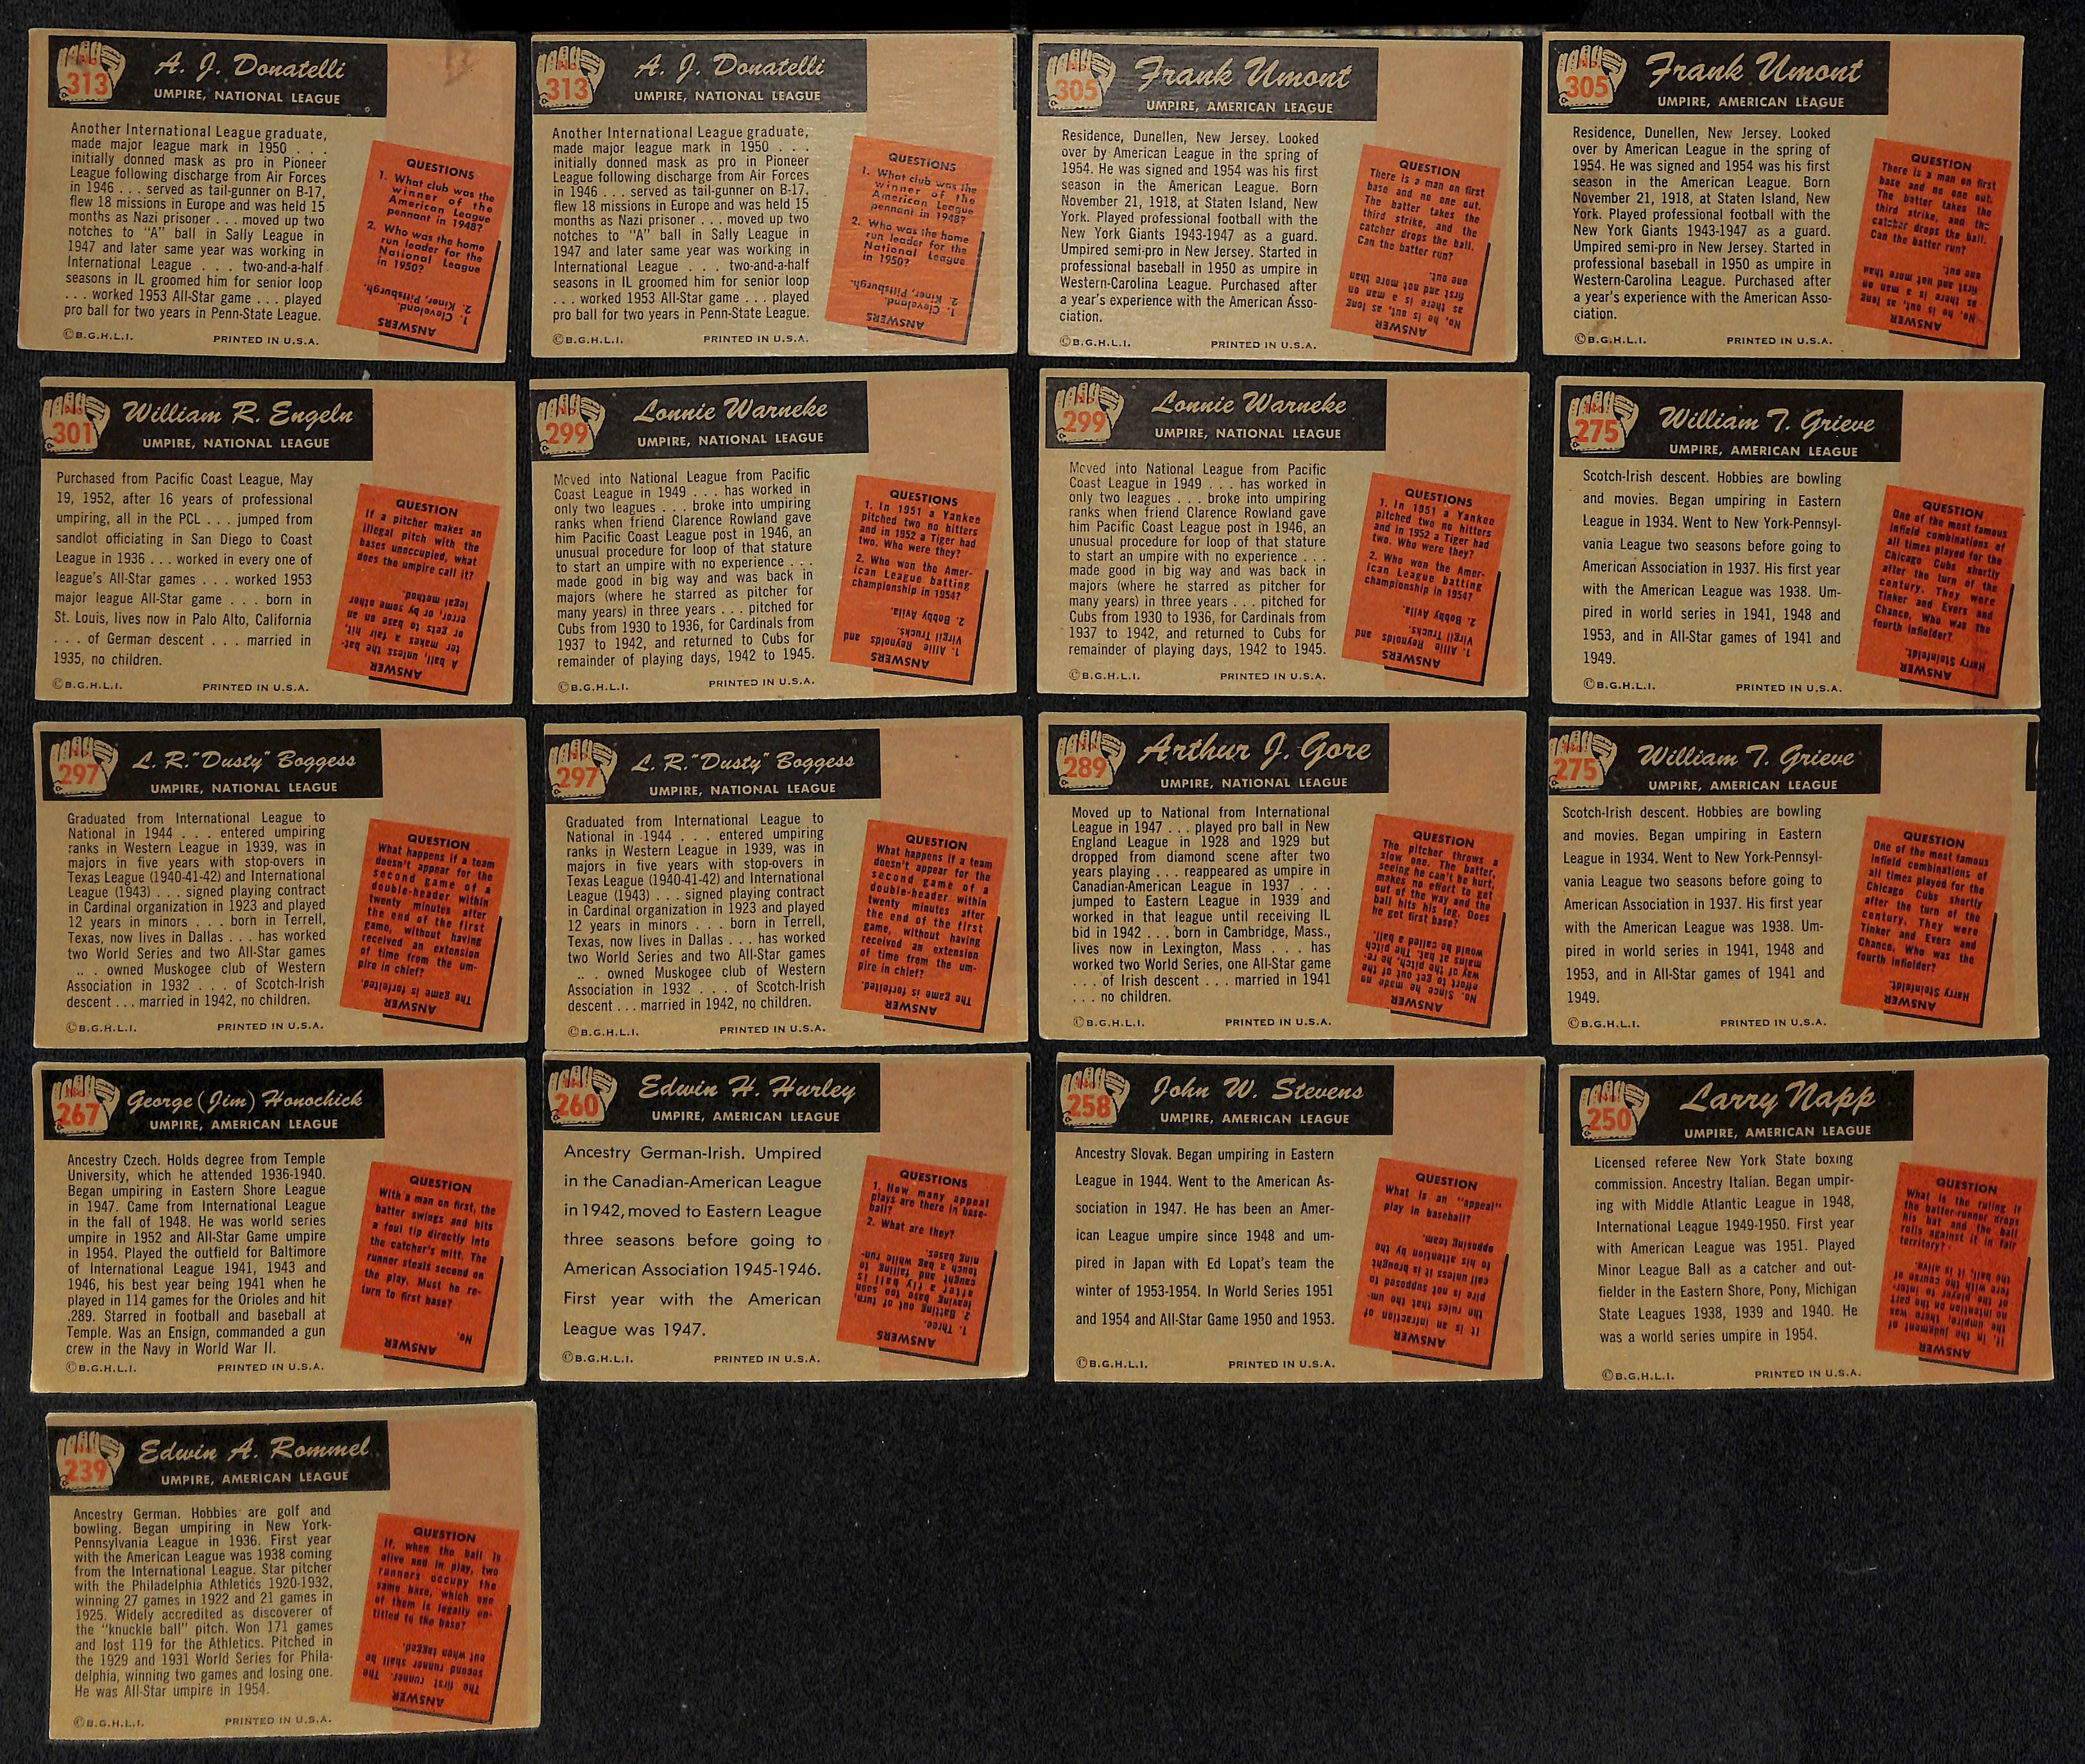 No. 313
A. J. Donatelli
UMPIRE, NATIONAL LEAGUE
Another International League graduate,
made major league mark in 1950 . . .
initially donned mask as pro in Pioneer
League following discharge from Air Forces
in 1946 . . . served as tail-gunner on B-17,
flew 18 missions in Europe and was held 15
months as Nazi prisoner . . . moved up two
notches to “A” ball in Sally League in
1947 and later same year was working in
International League . . . two-and-a-half
seasons in IL groomed him for senior loop
. . . worked 1953 All-Star game . . . played
pro ball for two years in Penn-State League.
QUESTIONS
1. What club was the
winner of the
American League
pennant in 1948?
2. Who was the home
run leader for the
National League
in 1950?
ANSWERS
1. Cleveland.
2. Kiner, Pittsburgh.
©B.G.H.L.I. PRINTED IN U.S.A.
No. 313
A. J. Donatelli
UMPIRE, NATIONAL LEAGUE
Another International League graduate,
made major league mark in 1950 . . .
initially donned mask as pro in Pioneer
League following discharge from Air Forces
in 1946 . . . served as tail-gunner on B-17,
flew 18 missions in Europe and was held 15
months as Nazi prisoner . . . moved up two
notches to “A” ball in Sally League in
1947 and later same year was working in
International League . . . two-and-a-half
seasons in IL groomed him for senior loop
. . . worked 1953 All-Star game . . . played
pro ball for two years in Penn-State League.
QUESTIONS
1. What club was the
winner of the
American League
pennant in 1948?
2. Who was the home
run leader for the
National League
in 1950?
ANSWERS
1. Cleveland.
2. Kiner, Pittsburgh.
©B.G.H.L.I. PRINTED IN U.S.A.
No. 305
Frank Umont
UMPIRE, AMERICAN LEAGUE
Residence, Dunellen, New Jersey. Looked
over by American League in the spring of
1954. He was signed and 1954 was his first
season in the American League. Born
November 21, 1918, at Staten Island, New
York. Played professional football with the
New York Giants 1943-1947 as a guard.
Umpired semi-pro in New Jersey. Started in
professional baseball in 1950 as umpire in
Western-Carolina League. Purchased after
a year's experience with the American Asso-
ciation.
QUESTION
There is a man on first
base and no one out.
The batter takes the
third strike, and the
catcher drops the ball.
Can the batter run?
ANSWER
No, he is out, as long
as there is a man on
first and not more than
one out.
©B.G.H.L.I. PRINTED IN U.S.A.
No. 305
Frank Umont
UMPIRE, AMERICAN LEAGUE
Residence, Dunellen, New Jersey. Looked
over by American League in the spring of
1954. He was signed and 1954 was his first
season in the American League. Born
November 21, 1918, at Staten Island, New
York. Played professional football with the
New York Giants 1943-1947 as a guard.
Umpired semi-pro in New Jersey. Started in
professional baseball in 1950 as umpire in
Western-Carolina League. Purchased after
a year's experience with the American Asso-
ciation.
QUESTION
There is a man on first
base and no one out.
The batter takes the
third strike, and the
catcher drops the ball.
Can the batter run?
ANSWER
No, he is out, as long
as there is a man on
first and not more than
one out.
©B.G.H.L.I. PRINTED IN U.S.A.
No. 301
William R. Engeln
UMPIRE, NATIONAL LEAGUE
Purchased from Pacific Coast League, May
19, 1952, after 16 years of professional
umpiring, all in the PCL . . . jumped from
sandlot officiating in San Diego to Coast
League in 1936 . . . worked in every one of
league's All-Star games . . . worked 1953
major league All-Star game . . . born in
St. Louis, lives now in Palo Alto, California
. . . of German descent . . . married in
1935, no children.
QUESTION
If a pitcher makes an
illegal pitch with the
bases unoccupied, what
does the umpire call it?
ANSWER
A ball, unless the bat-
ter makes a fair hit,
or gets to base on an
error, or by some other
legal method.
©B.G.H.L.I. PRINTED IN U.S.A.
No. 299
Lonnie Warneke
UMPIRE, NATIONAL LEAGUE
Moved into National League from Pacific
Coast League in 1949 . . . has worked in
only two leagues . . . broke into umpiring
ranks when friend Clarence Rowland gave
him Pacific Coast League post in 1946, an
unusual procedure for loop of that stature
to start an umpire with no experience . . .
made good in big way and was back in
majors (where he starred as pitcher for
many years) in three years . . . pitched for
Cubs from 1930 to 1936, for Cardinals from
1937 to 1942, and returned to Cubs for
remainder of playing days, 1942 to 1945.
QUESTIONS
1. In 1951 a Yankee
pitched two no hitters
and in 1952 a Tiger had
two. Who were they?
2. Who won the Amer-
ican League batting
championship in 1954?
ANSWERS
1. Allie Reynolds and
Virgil Trucks.
2. Bobby Avila.
©B.G.H.L.I. PRINTED IN U.S.A.
No. 299
Lonnie Warneke
UMPIRE, NATIONAL LEAGUE
Moved into National League from Pacific
Coast League in 1949 . . . has worked in
only two leagues . . . broke into umpiring
ranks when friend Clarence Rowland gave
him Pacific Coast League post in 1946, an
unusual procedure for loop of that stature
to start an umpire with no experience . . .
made good in big way and was back in
majors (where he starred as pitcher for
many years) in three years . . . pitched for
Cubs from 1930 to 1936, for Cardinals from
1937 to 1942, and returned to Cubs for
remainder of playing days, 1942 to 1945.
QUESTIONS
1. In 1951 a Yankee
pitched two no hitters
and in 1952 a Tiger had
two. Who were they?
2. Who won the Amer-
ican League batting
championship in 1954?
ANSWERS
1. Allie Reynolds and
Virgil Trucks.
2. Bobby Avila.
©B.G.H.L.I. PRINTED IN U.S.A.
No. 275
William T. Grieve
UMPIRE, AMERICAN LEAGUE
Scotch-Irish descent. Hobbies are bowling
and movies. Began umpiring in Eastern
League in 1934. Went to New York-Pennsyl-
vania League two seasons before going to
American Association in 1937. His first year
with the American League was 1938. Um-
pired in world series in 1941, 1948 and
1953, and in All-Star games of 1941 and
1949.
QUESTION
One of the most famous
infield combinations of
all times played for the
Chicago Cubs shortly
after the turn of the
century. They were
Tinker and Evers and
Chance, Who was the
fourth infielder?
ANSWER
Harry Steinfeldt.
©B.G.H.L.I. PRINTED IN U.S.A.
No. 297
L. R. “Dusty” Boggess
UMPIRE, NATIONAL LEAGUE
Graduated from International League to
National in 1944 . . . entered umpiring
ranks in Western League in 1939, was in
majors in five years with stop-overs in
Texas League (1940-41-42) and International
League (1943) . . . signed playing contract
in Cardinal organization in 1923 and played
12 years in minors . . . born in Terrell,
Texas, now lives in Dallas . . . has worked
two World Series and two All-Star games
. . . owned Muskogee club of Western
Association in 1932 . . . of Scotch-Irish
descent . . . married in 1942, no children.
QUESTION
What happens if a team
doesn't appear for the
second game of a
double-header within
twenty minutes after
the end of the first
game, without having
received an extension
of time from the um-
pire in chief?
ANSWER
The game is forfeited.
©B.G.H.L.I. PRINTED IN U.S.A.
No. 297
L. R. “Dusty” Boggess
UMPIRE, NATIONAL LEAGUE
Graduated from International League to
National in 1944 . . . entered umpiring
ranks in Western League in 1939, was in
majors in five years with stop-overs in
Texas League (1940-41-42) and International
League (1943) . . . signed playing contract
in Cardinal organization in 1923 and played
12 years in minors . . . born in Terrell,
Texas, now lives in Dallas . . . has worked
two World Series and two All-Star games
. . . owned Muskogee club of Western
Association in 1932 . . . of Scotch-Irish
descent . . . married in 1942, no children.
QUESTION
What happens if a team
doesn't appear for the
second game of a
double-header within
twenty minutes after
the end of the first
game, without having
received an extension
of time from the um-
pire in chief?
ANSWER
The game is forfeited.
©B.G.H.L.I. PRINTED IN U.S.A.
No. 289
Arthur J. Gore
UMPIRE, NATIONAL LEAGUE
Moved up to National from International
League in 1947 . . . played pro ball in New
England League in 1928 and 1929 but
dropped from diamond scene after two
years playing . . . reappeared as umpire in
Canadian-American League in 1937 . . .
jumped to Eastern League in 1939 and
worked in that league until receiving IL
bid in 1942 . . . born in Cambridge, Mass.,
lives now in Lexington, Mass . . . has
worked two World Series, one All-Star game
. . . of Irish descent . . . married in 1941
. . . no children.
QUESTION
The pitcher throws a
slow one. The batter,
seeing he can't be hurt,
makes no effort to get
out of the way and the
ball hits his leg. Does
he get first base?
ANSWER
No. Since he made no
effort to get out of the
way of the pitch, he re-
mains at bat. The pitch
would be called a ball.
©B.G.H.L.I. PRINTED IN U.S.A.
No. 275
William T. Grieve
UMPIRE, AMERICAN LEAGUE
Scotch-Irish descent. Hobbies are bowling
and movies. Began umpiring in Eastern
League in 1934. Went to New York-Pennsyl-
vania League two seasons before going to
American Association in 1937. His first year
with the American League was 1938. Um-
pired in world series in 1941, 1948 and
1953, and in All-Star games of 1941 and
1949.
QUESTION
One of the most famous
infield combinations of
all times played for the
Chicago Cubs shortly
after the turn of the
century. They were
Tinker and Evers and
Chance, Who was the
fourth infielder?
ANSWER
Harry Steinfeldt.
©B.G.H.L.I. PRINTED IN U.S.A.
No. 267
George (Jim) Honochick
UMPIRE, AMERICAN LEAGUE
Ancestry Czech. Holds degree from Temple
University, which he attended 1936-1940.
Began umpiring in Eastern Shore League
in 1947. Came from International League
in the fall of 1948. He was world series
umpire in 1952 and All-Star Game umpire
in 1954. Played the outfield for Baltimore
of International League 1941, 1943 and
1946, his best year being 1941 when he
played in 114 games for the Orioles and hit
.289. Starred in football and baseball at
Temple. Was an Ensign, commanded a gun
crew in the Navy in World War II.
QUESTION
With a man on first, the
batter swings and hits
a foul tip directly into
the catcher's mitt. The
runner steals second on
the play. Must he re-
turn to first base?
ANSWER
No.
©B.G.H.L.I. PRINTED IN U.S.A.
No. 260
Edwin H. Hurley
UMPIRE, AMERICAN LEAGUE
Ancestry German-Irish. Umpired
in the Canadian-American League
in 1942, moved to Eastern League
three seasons before going to
American Association 1945-1946.
First year with the American
League was 1947.
QUESTIONS
1. How many appeal
plays are there in base-
ball?
2. What are they?
ANSWERS
1. Three.
2. Batting out of turn,
leaving base too soon
after a fly ball is
caught and failing to
touch a bag while run-
ning bases.
©B.G.H.L.I. PRINTED IN U.S.A.
No. 258
John W. Stevens
UMPIRE, AMERICAN LEAGUE
Ancestry Slovak. Began umpiring in Eastern
League in 1944. Went to the American As-
sociation in 1947. He has been an Amer-
ican League umpire since 1948 and um-
pired in Japan with Ed Lopat's team the
winter of 1953-1954. In World Series 1951
and 1954 and All-Star Game 1950 and 1953.
QUESTION
What is an “appeal”
play in baseball?
ANSWER
It is an infraction of
the rules that the um-
pire is not supposed to
call unless it is brought
to his attention by the
opposing team.
©B.G.H.L.I. PRINTED IN U.S.A.
No. 250
Larry Napp
UMPIRE, AMERICAN LEAGUE
Licensed referee New York State boxing
commission. Ancestry Italian. Began umpir-
ing with Middle Atlantic League in 1948,
International League 1949-1950. First year
with American League was 1951. Played
Minor League Ball as a catcher and out-
fielder in the Eastern Shore, Pony, Michigan
State Leagues 1938, 1939 and 1940. He
was a world series umpire in 1954.
QUESTION
What is the ruling if
the batter-runner drops
his bat and the ball
rolls against it in fair
territory?
ANSWER
If, in the judgment of
the umpire, there was
no intention on the part
of the player to inter-
fere with the course of
the ball, it is alive.
©B.G.H.L.I. PRINTED IN U.S.A.
No. 239
Edwin A. Rommel
UMPIRE, AMERICAN LEAGUE
Ancestry German. Hobbies are golf and
bowling. Began umpiring in New York-
Pennsylvania League in 1936. First year
with the American League was 1938 coming
from the International League. Star pitcher
with the Philadelphia Athletics 1920-1932,
winning 27 games in 1922 and 21 games in
1925. Widely accredited as discoverer of
the “knuckle ball” pitch. Won 171 games
and lost 119 for the Athletics. Pitched in
the 1929 and 1931 World Series for Phila-
delphia, winning two games and losing one.
He was All-Star umpire in 1954.
QUESTION
If, when the ball is
alive and in play, two
runners occupy the
same base, which one
of them is legally en-
titled to the base?
ANSWER
The first runner. The
second runner shall be
out when tagged.
©B.G.H.L.I. PRINTED IN U.S.A.